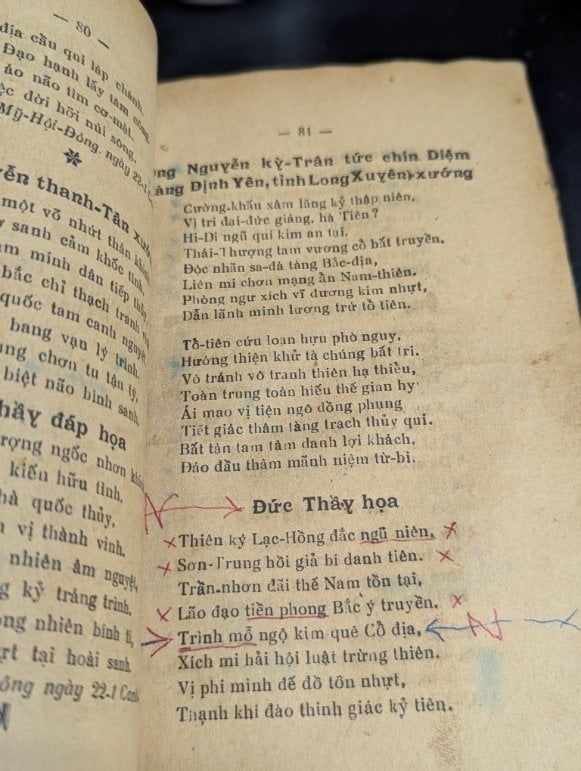 — 80 —
địa cầu qui lập chánh,
Đạo hạnh lấy tâm công,
ảo não tìm cơ-mật,
ệc đời hỡi núi sông.
Mỹ-Hội-Đông, ngày 22-1
✻
ễn thanh-Tân xướ
một võ nhứt thân
sanh cảm khốc tình,
am minh dân tiếp
bắc chỉ thạch tranh
quốc tam canh nguyệt,
bang vạn lý trình.
ng chơn tu tận tý,
biệt não bình sanh
hầy đáp họa
ượng ngốc nhơn
kiến hữu tình,
hà quốc thủy,
vị thành vinh.
nhiên âm nguyệt,
g kỷ tráng trình.
ng nhiên bính tí,
rt tại hoài sanh
ông ngày 22-1
— 81 —
ng Nguyễn kỳ-Trân tức chín Diệm
àng Định Yên, tỉnh Long Xuyên) xướng
Cường-khấu xâm lăng kỷ thập niên,
Vị tri đại-đức giáng, hà Tiên?
Hi-Di ngũ quí kim an tại,
Thái-Thượng tam vương cổ bất truyền.
Độc nhãn sa-đà tàng Bắc-địa,
Liên mi chơn mạng ẩn Nam-thiên.
Phòng ngư xích vĩ dương kim nhựt,
Dẫn lãnh minh lương trứ tổ tiên.
Tổ-tiên cứu loạn hựu phò nguy,
Hướng thiện khử tà chúng bất tri.
Võ tránh võ tranh thiên hạ thiều,
Toàn trung toàn hiếu thế gian hy.
Ái mao vị tiện ngó đồng phụng
Tiết giác thâm tàng trạch thủy qui.
Bất tận tam tâm danh lợi khách,
Đáo đầu thảm mãnh niệm từ-bi.
Đức Thầy họa
Thiên ký Lạc-Hồng đắc ngũ niên,
Sơn-Trung hồi giả bí danh tiên.
Trần-nhơn đãi thế Nam tồn tại,
Lão đạo tiền phong Bắc ý truyền.
Trình mỗ ngộ kim quê Cổ địa,
Xích mi hải hội luật trừng thiên.
Vị phi minh đế đồ tôn nhựt,
Thạnh khí đào thinh giác kỷ tiên.